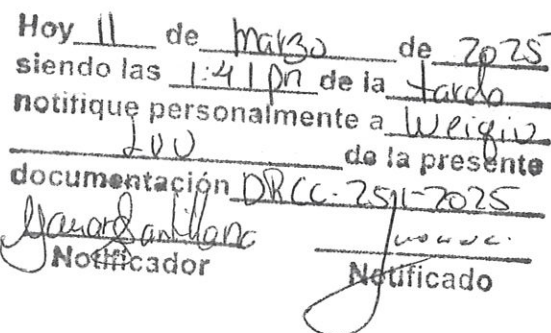 Hoy 11 de marzo de 2025
siendo las 1:41 pm de la tarde
notifique personalmente a Weiqiu
Luo de la presente
documentación DRCC-251-2025
Notificador Notificado